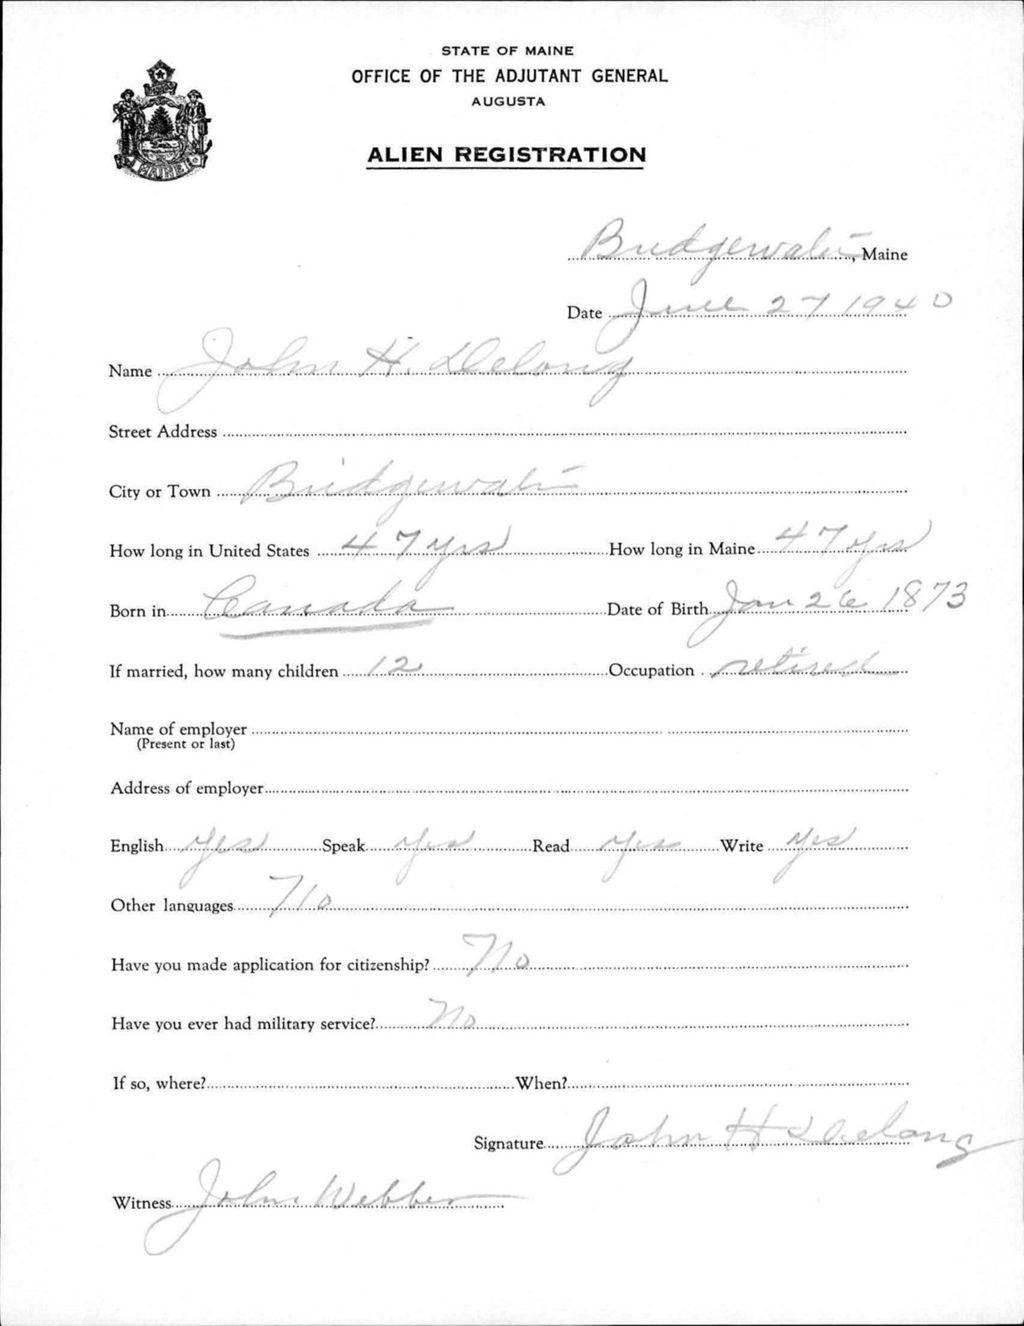 STATE OF MAINE
OFFICE OF THE ADJUTANT GENERAL
AUGUSTA
ALIEN REGISTRATION
MAINE
Bridgewater, Maine
Date June 27 1940
Name John H. Delong
Street Address
City or Town Bridgewater
How long in United States 47 yrs How long in Maine 47 yrs
Born in Canada Date of Birth Jan 26 1873
If married, how many children 12 Occupation retired
Name of employer
(Present or last)
Address of employer
English yes Speak yes Read yes Write yes
Other languages No
Have you made application for citizenship? No
Have you ever had military service? No
If so, where? When?
Signature John H Delong
Witness John Webber